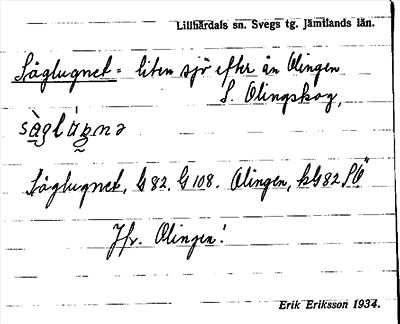 Lillhärdals sn. Svegs tg. Jämtlands län.
Såglugnet = liten sjö efter ån Olingen
S. Olingskog,
Såglugnet, G 82. G 108. Olingen, kG 82 SO
Jfr. Olingen!
Erik Eriksson 1934.